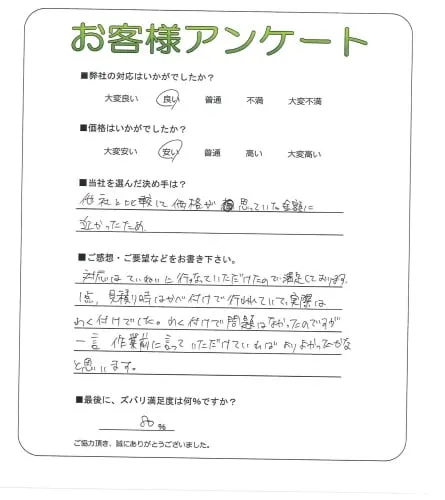 お客様アンケート
■弊社の対応はいかがでしたか?
大変良い 良い 普通 不満 大変不満
■価格はいかがでしたか?
大変安い 安い 普通 高い 大変高い
■当社を選んだ決め手は?
他社と比較して価格が思っていた金額に
近かったため。
■ご感想・ご要望などをお書き下さい。
対応はていねいに行なっていただけたので満足しております。
1点、見積り時はかべ付けで行われていて、実際は
わく付けでした。わく付けで問題はなかったのですが
一言 作業前に言っていただけていればよりよかったかな
と思います。
■最後に、ズバリ満足度は何%ですか?
80 %
ご協力頂き、誠にありがとうございました。